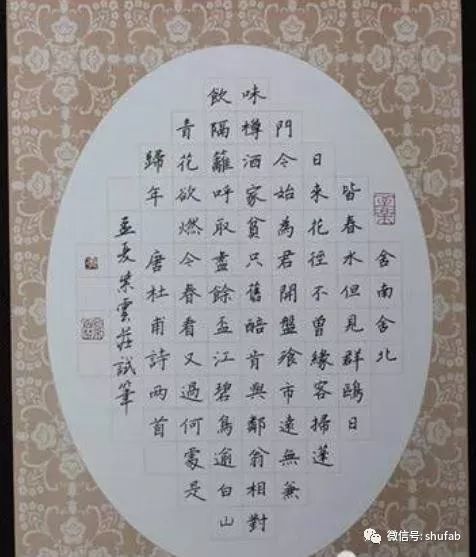 舍南舍北
皆春水但見群鷗日
日來花徑不曾緣客掃蓬
門今始為君開盤飧市遠無兼
味樽酒家貧只舊醅肯與鄰翁相對
飲隔籬呼取盡餘盃江碧鳥逾白山
青花欲燃今春看又過何處是
歸年 唐杜甫詩兩首
孟夏紫雲莊試筆
微信号: shufab